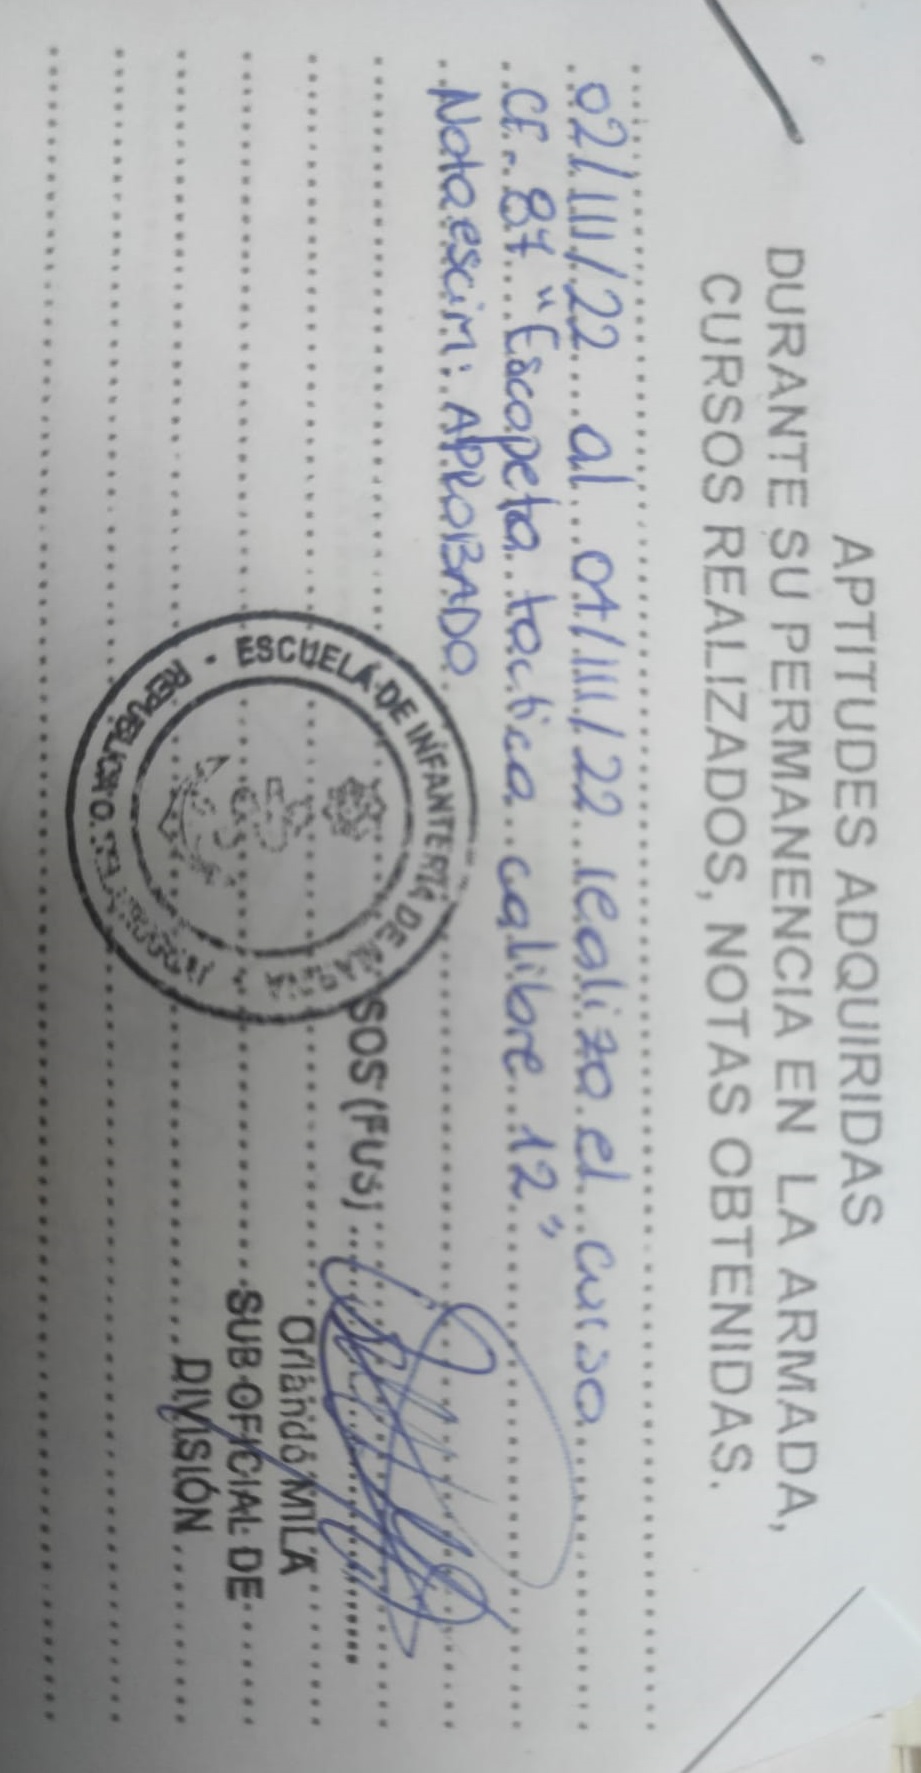 APTITUDES ADQUIRIDAS
DURANTE SU PERMANENCIA EN LA ARMADA,
CURSOS REALIZADOS, NOTAS OBTENIDAS.
02/III/22 al 04/III/22 realizo el curso
CE-87 "Escopeta tactica calibre 12"
Nota escim: APROBADO
ESCUELA DE INFANTERIA DE
SOS (FUS)
Orlando MILA
SUB OFICIAL DE
DIVISIÓN